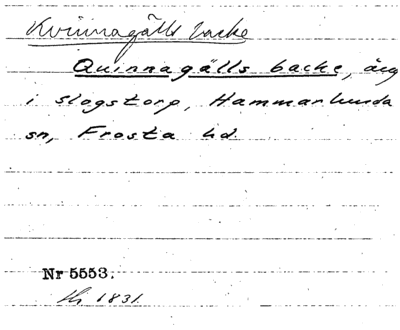 Kvinnagälls backe
Quinnagälls backe, äng
i slogstorp, Hammarlunda
sn, Frosta hd
Nr 5553.
1831.